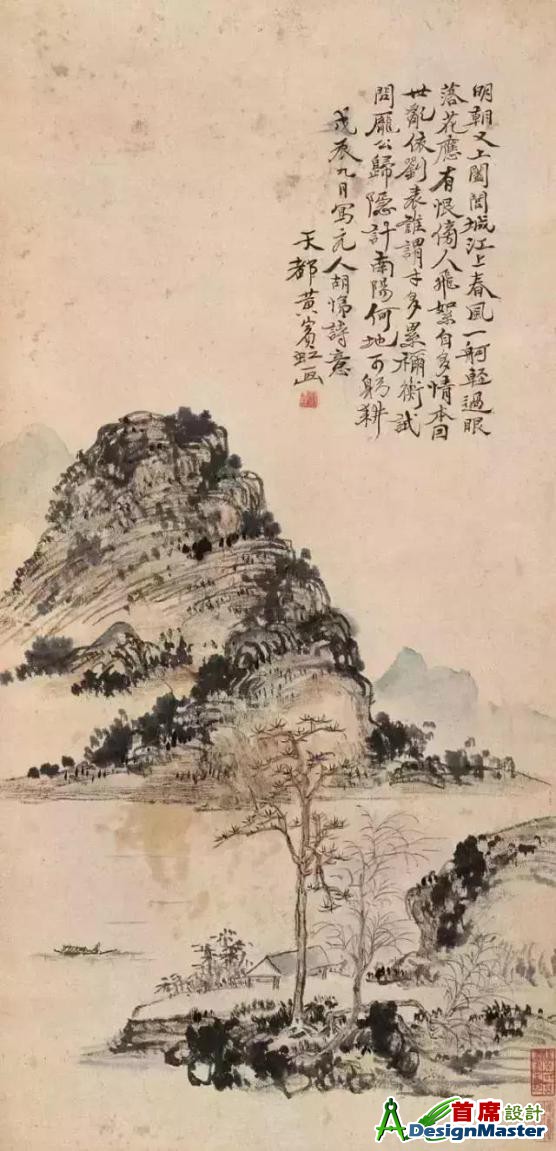 明朝又上闔閭城江上春風一舸輕過眼
落花應有恨傍人飛絮自多情本因
世亂依劉表誰謂才多累禰衡試
問龐公歸隱計南陽何地可躬耕
戊辰九月寫元人胡悌詩意
天都黃賓虹画
首席設計
ADesignMaster